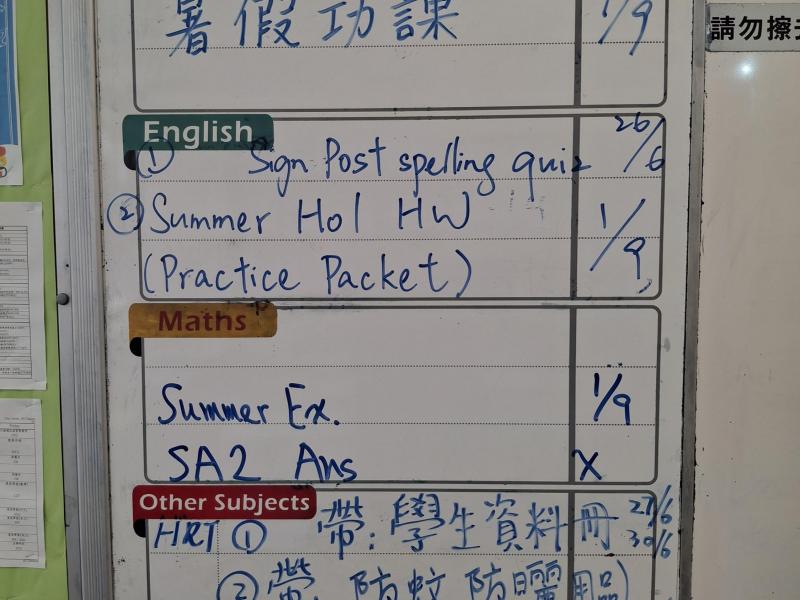 暑假功課 1/9
請勿擦
English
① Sign Post spelling quiz 26/6
② Summer Hol HW 1/9
(Practice Packet)
Maths
Summer Ex. 1/9
SA2 Ans X
Other Subjects
HRT ① 帶：學生資料冊 27/6 30/6
② 帶：防蚊防曬用品)